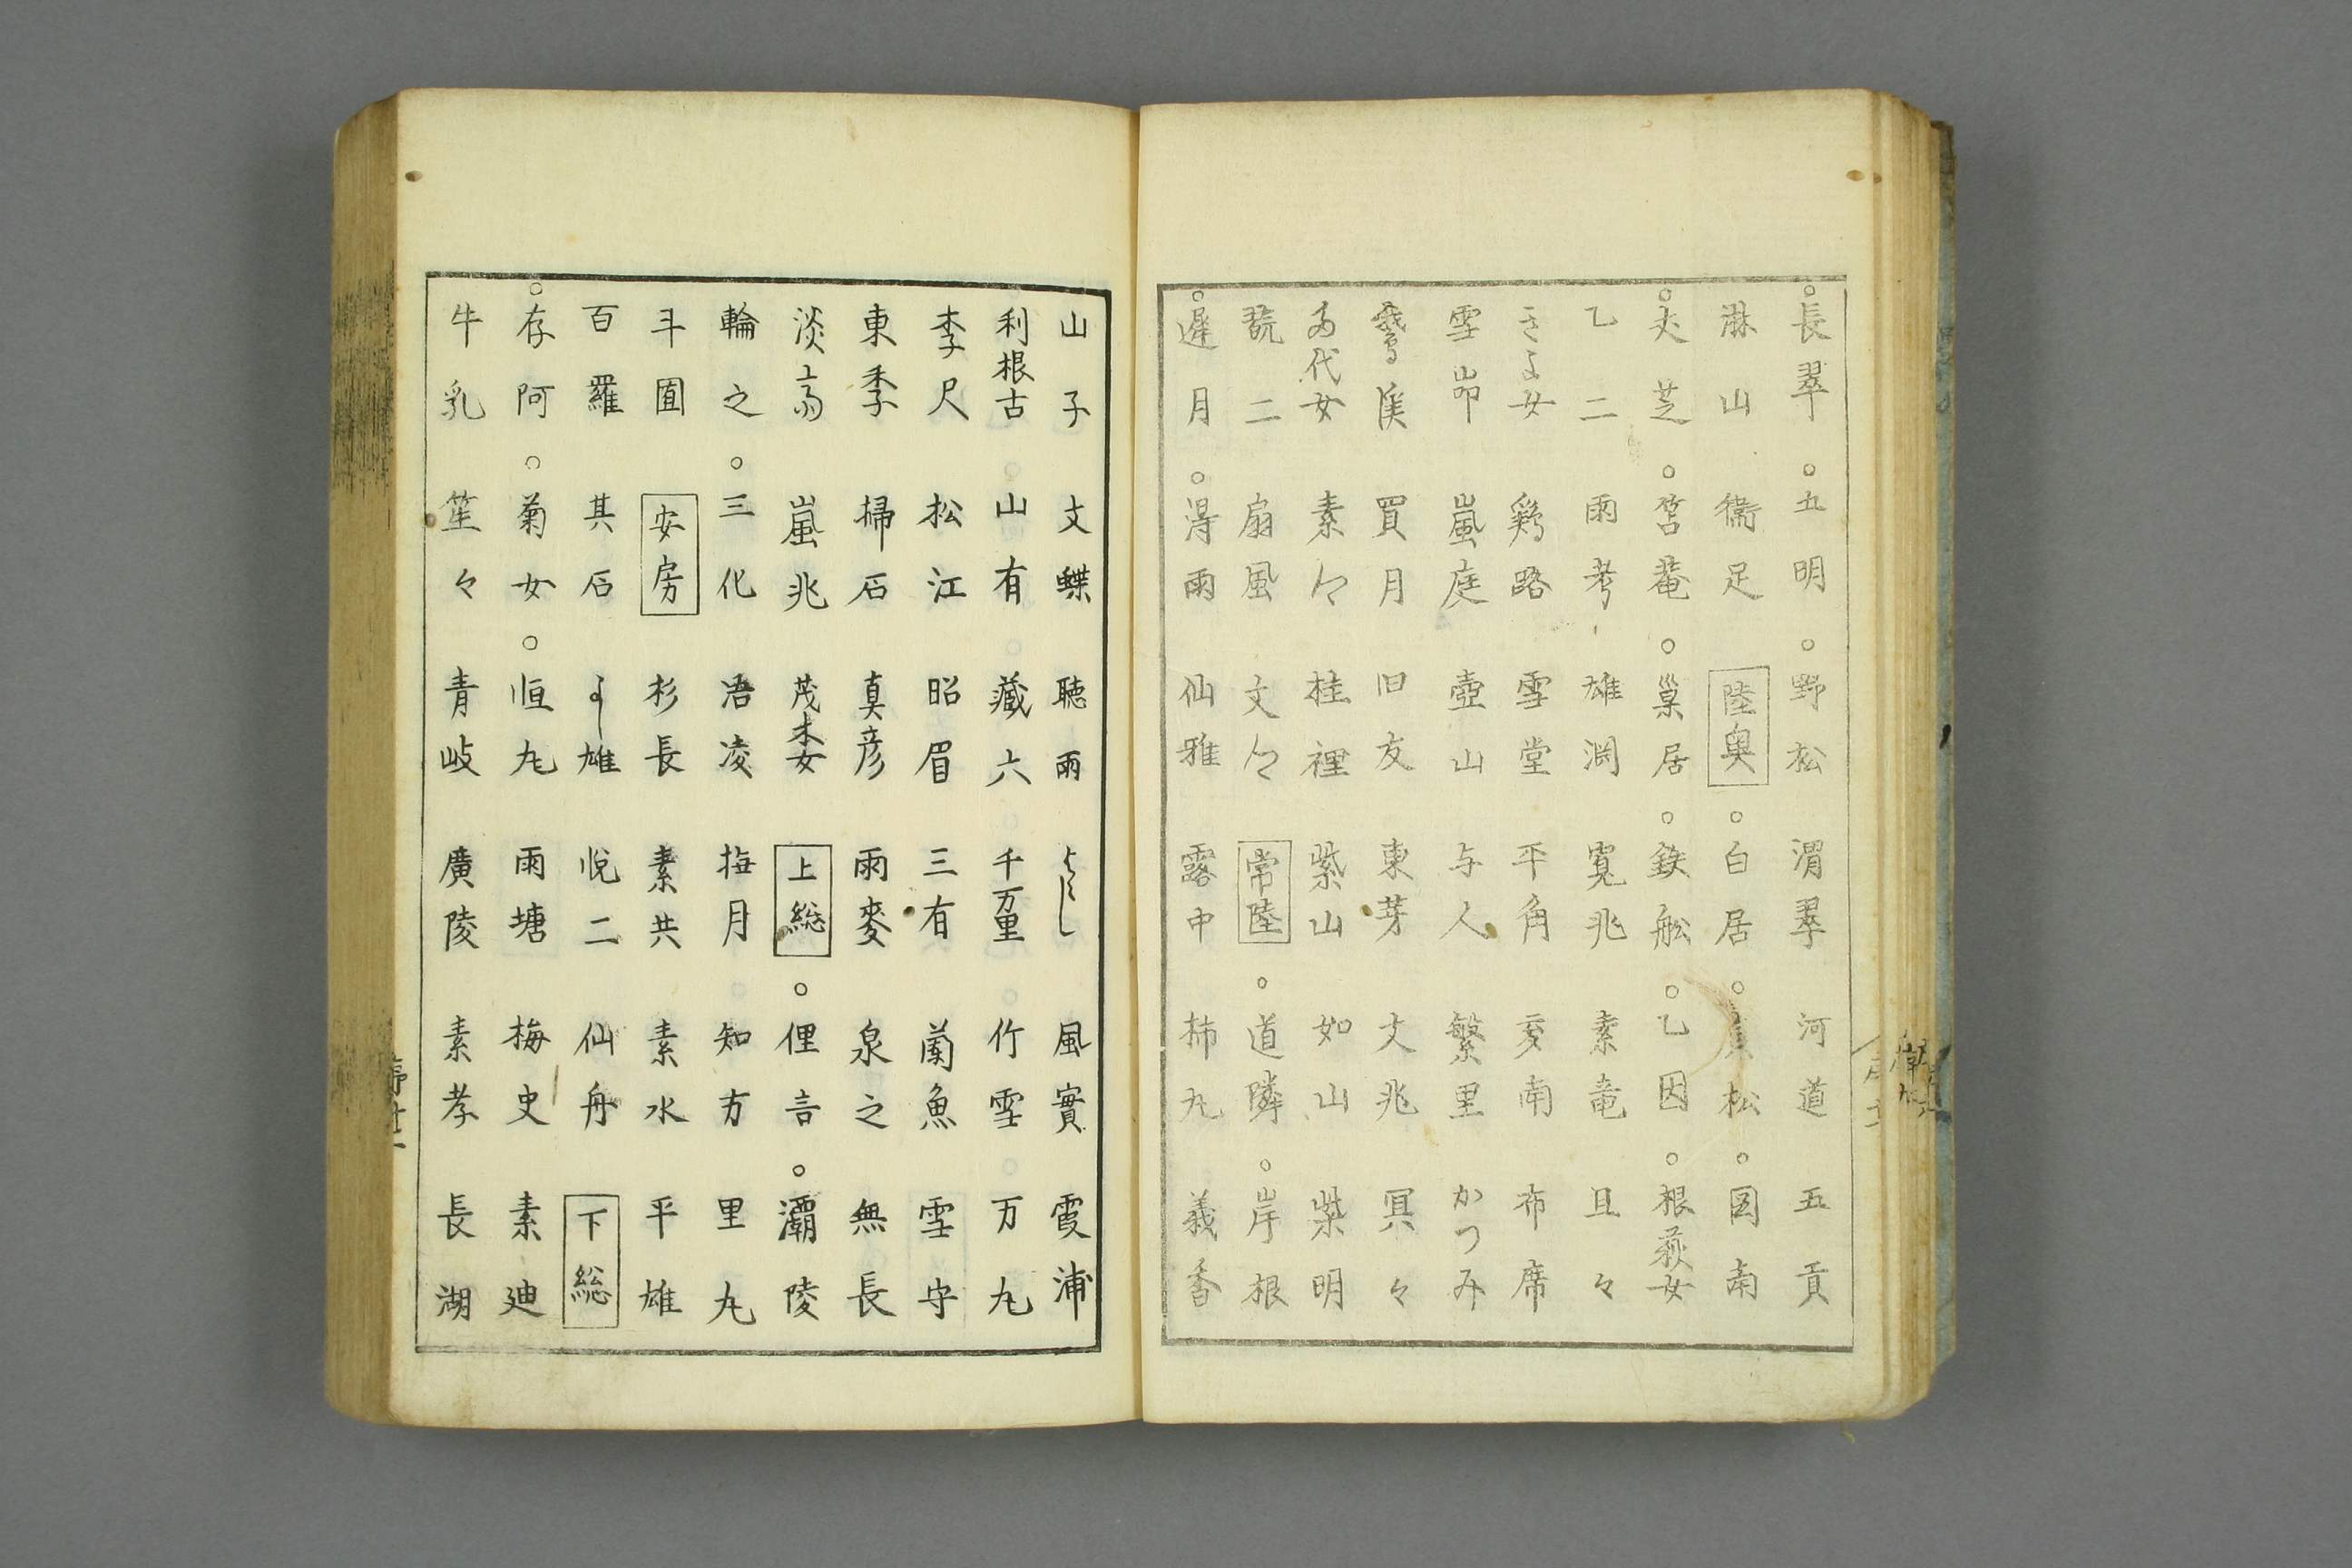 ○長翠 ○五明 ○野松 渭翠 河道 五貢
淋山 徳足 陸奥 ○白居 ○眞松 ○図南
○丈芝 ○筥菴 ○巣居 ○鉄舩 ○乙因 ○根萩女
乙二 雨考 雄渕 寛兆 素竜 且々
きよ女 鶏路 雪堂 平角 麦南 布席
雪峁 嵐庭 壺山 与人 繁里 かつみ
鵞渓 買月 旧友 東芽 丈兆 冥々
多代女 素々 桂裡 紫山 如山 柴明
二 扇風 文々 常陸 ○道隣 ○岸根
○遅月 ○淂雨 仙雅 露中 柿丸 義香
山子 文蝶 聴雨 よし 風實 霞浦
利根古 ○山有 ○蔵六 千万里 竹雪 万丸
李尺 松江 昭眉 三有 蘭魚 雪守
東季 掃石 真彦 雨麥 泉之 無長
淡斎 嵐兆 茂木女 上総 ○俚言 ○灞陵
輪之 ○三化 浯凌 梅月 知方 里丸
斗囿 安房 杉長 素共 素水 平雄
百羅 其石 よし雄 悦二 仙舟 下総
○存阿 ○菊女 ○恒丸 雨塘 梅史 素廸
牛乳 笙々 青岐 廣陵 素孝 長湖